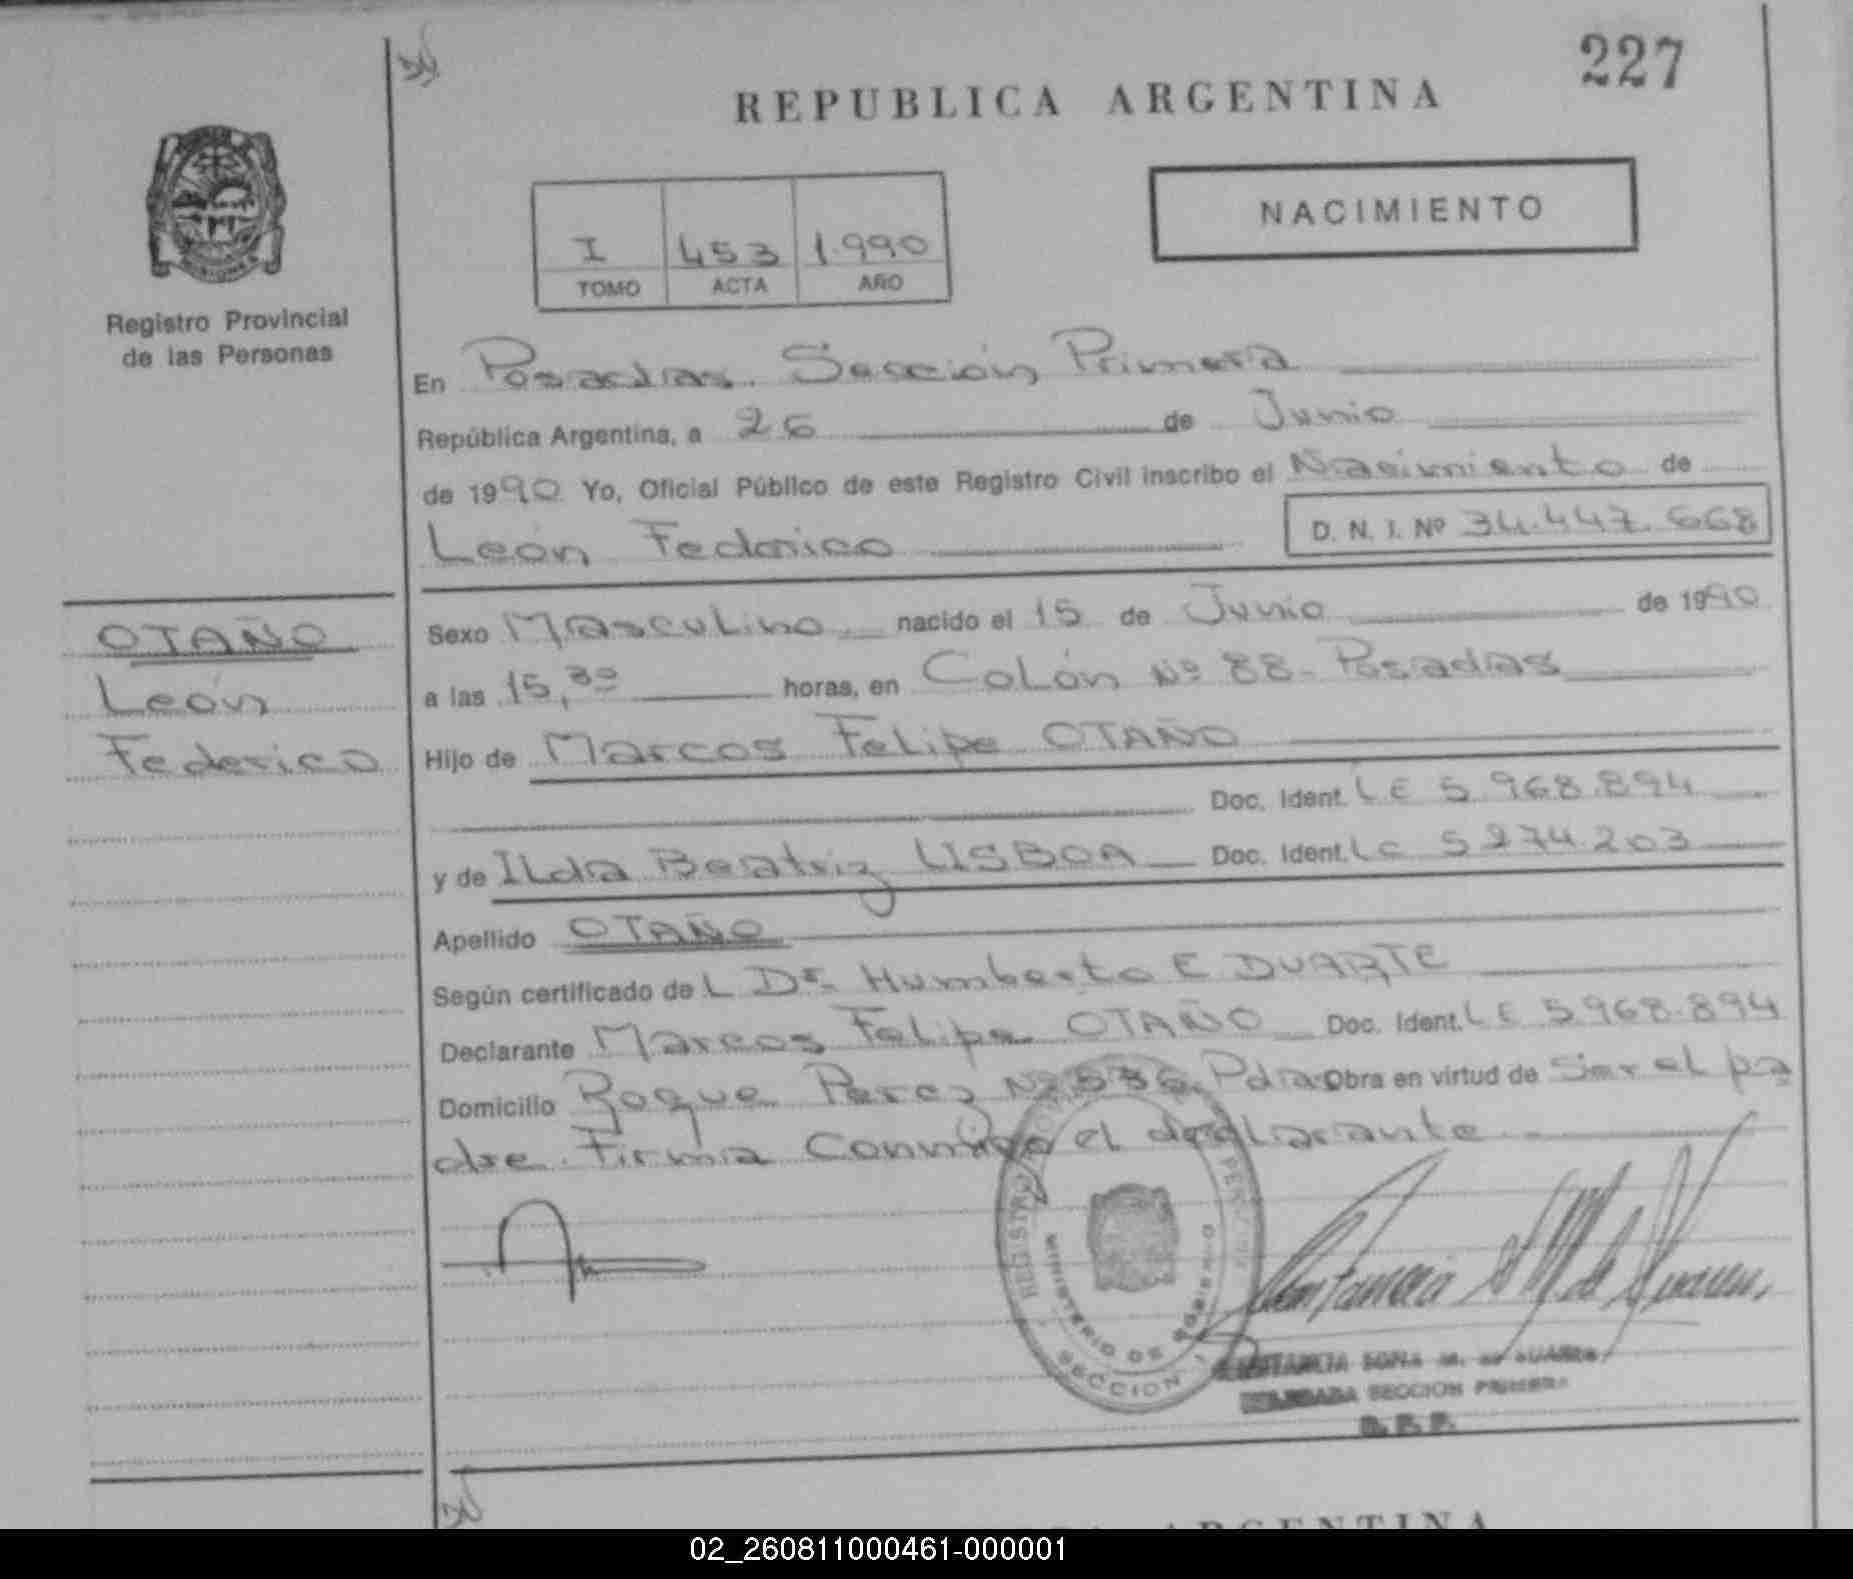 227
REPUBLICA ARGENTINA
NACIMIENTO
I 453 1.990
TOMO ACTA AÑO
MISIONES
Registro Provincial
de las Personas
En Posadas. Sección Primera
República Argentina, a 26 de Junio
de 1990 Yo, Oficial Público de este Registro Civil inscribo el Nacimiento de
León Federico D. N. I. Nº 34.447.668
OTAÑO
León
Federico
Sexo Masculino nacido el 15 de Junio de 1990
a las 15,30 horas, en Colón Nº 88- Posadas
Hijo de Marcos Felipe OTAÑO
Doc. Ident. LE 5.968.894
y de Ilda Beatriz LISBOA Doc. Ident. LC 5.274.203
Apellido OTAÑO
Según certificado de L Dr. Humberto E DUARTE
Declarante Marcos Felipe OTAÑO Doc. Ident. LE 5.968.894
Domicilio Roque Perez Nº Pdas Obra en virtud de Ser el pa
dre. Firma Conmigo el declarante
REGISTRO
MINISTERIO DE GOBIERNO
SECCION 1
SECCION PRIMERA
R. P. P.
ARGENTINA
02_260811000461-000001